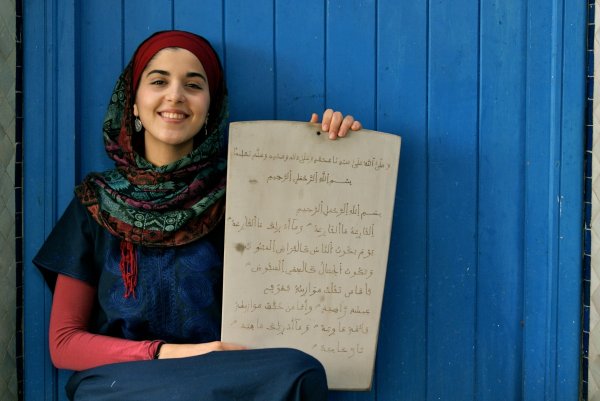 وصلى الله على سيدنا محمد وعلى ءاله وصحبه وسلم تسليما
بسم الله الرحمن الرحيم
بسم الله الرحمن الرحيم
القارعة ما القارعة وما أدريك ما القارعة
يوم يكون الناس كالفراش المبثوث
وتكون الجبال كالعهن المنفوش
فأما من ثقلت موازينه فهو في
عيشة راضية وأما من خفت موازينه
فأمه هاوية وما أدريك ما هيه
نار حامية